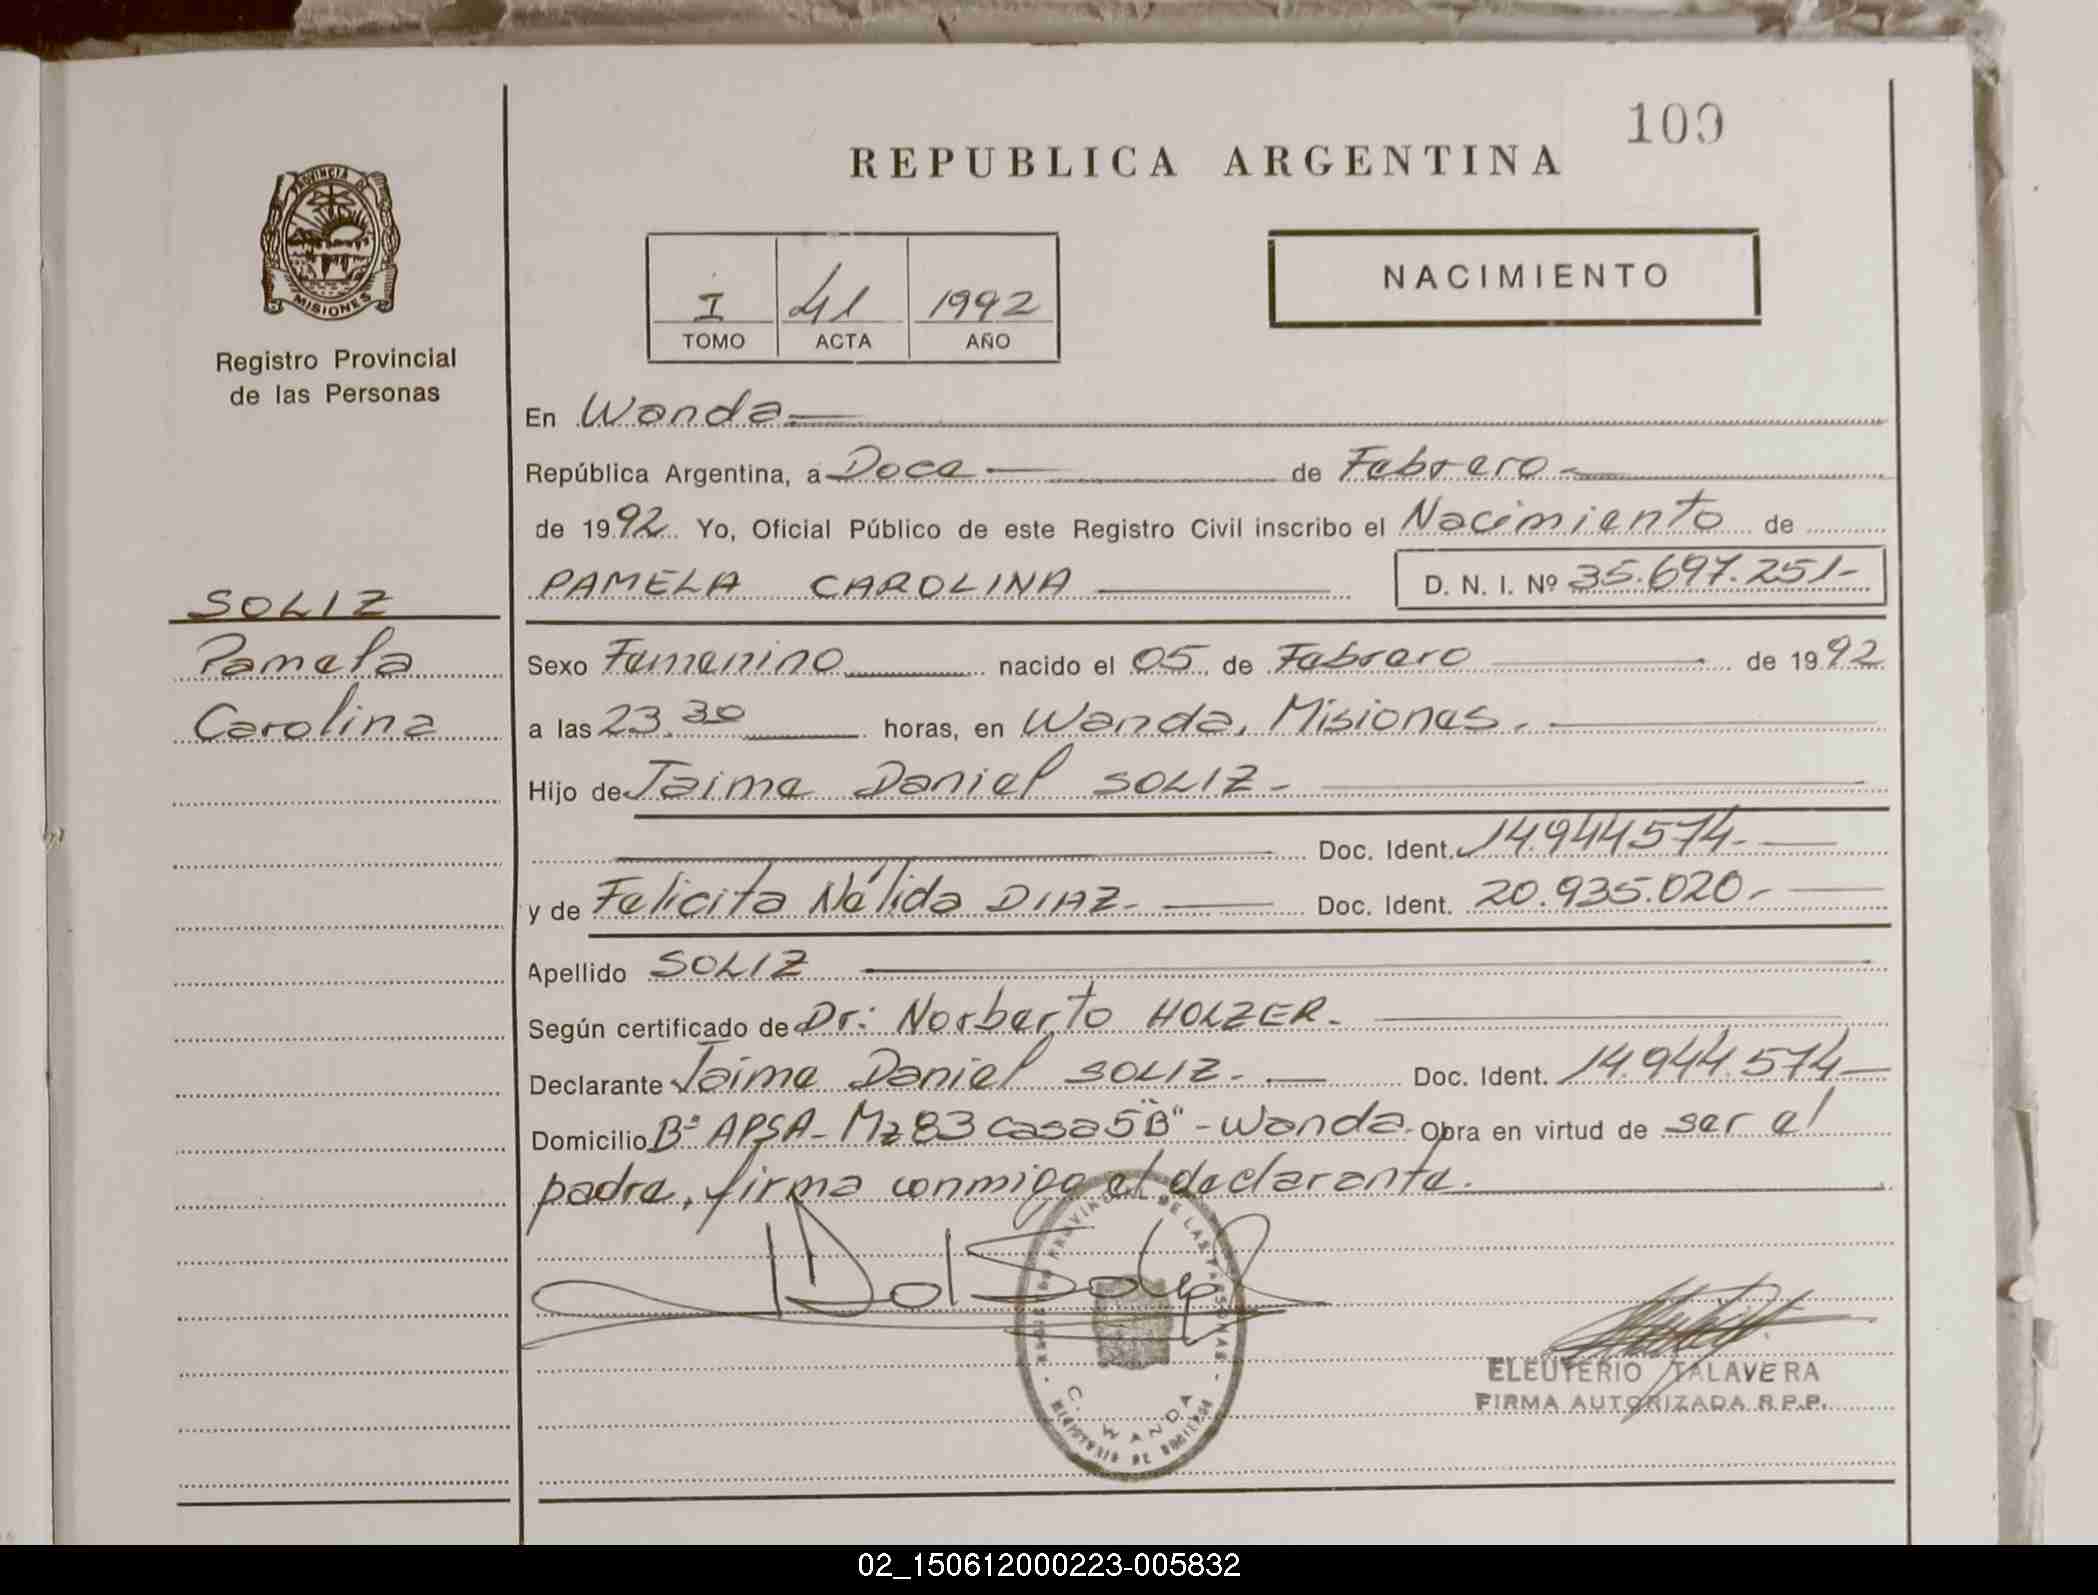 100
REPUBLICA ARGENTINA
PROVINCIA DE
MISIONES
Registro Provincial
de las Personas
NACIMIENTO
I 41 1992
TOMO ACTA AÑO
En Wanda
República Argentina, a Doce de Febrero
de 1992 Yo, Oficial Público de este Registro Civil inscribo el Nacimiento de
PAMELA CAROLINA D. N. I. Nº 35.697.251-
SOLIZ
Pamela
Carolina
Sexo Femenino nacido el 05 de Febrero de 1992
a las 23.30 horas, en Wanda, Misiones.
Hijo de Jaime Daniel SOLIZ-
Doc. Ident. 14.944574-
y de Felicita Nélida DIAZ- Doc. Ident. 20.935.020-
Apellido SOLIZ
Según certificado de Dr: Norberto HOLZER-
Declarante Jaime Daniel SOLIZ- Doc. Ident. 14.944.574-
Domicilio Bº APSA- Mz 83 casa 5"B" - Wanda- Obra en virtud de ser el
padre, firma conmigo el declarante.
C. WANDA
ELEUTERIO TALAVERA
FIRMA AUTORIZADA R.P.P.
02_150612000223-005832